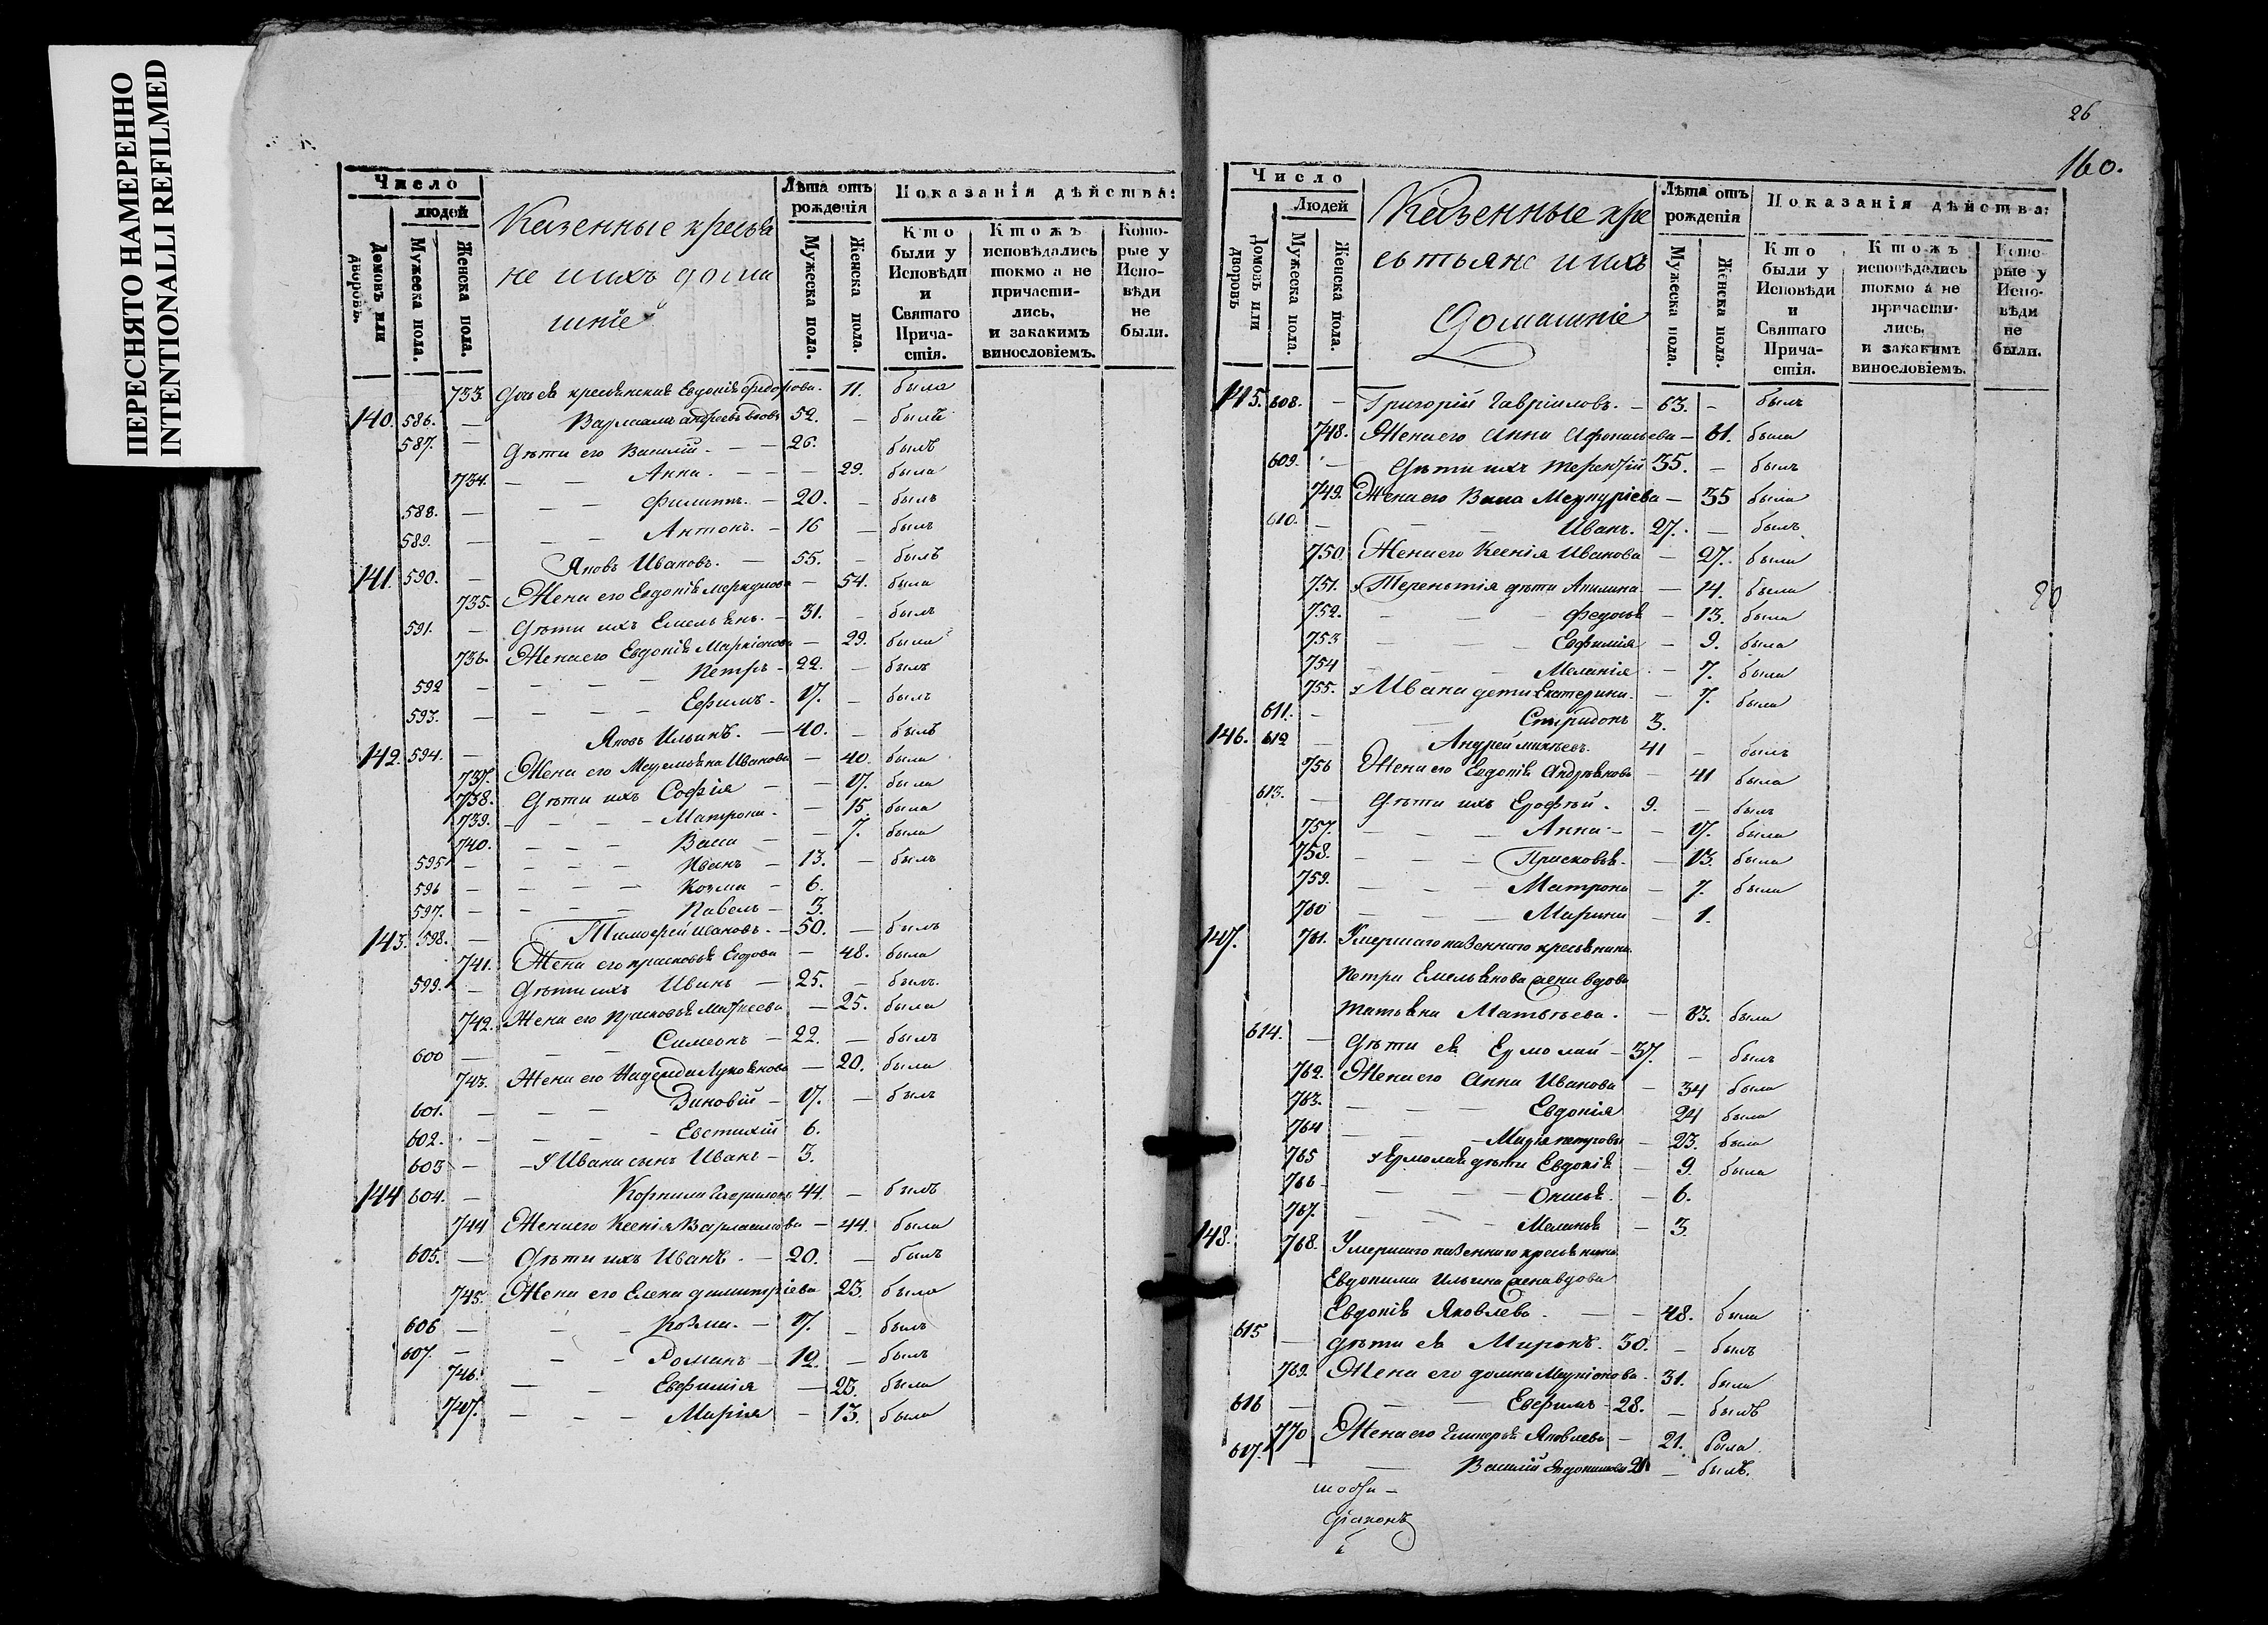 ПЕРЕСНЯТО НАМЕРЕННО
INTENTIONALLI REFILMED
Число
людей
Домовъ или дворовъ.
Мужеска пола.
Женска пола.
Казенные кресья
не и ихъ дома
шніе
Лѣта отъ рождения
Мужеска пола.
Женска пола.
Показанія дѣйства:
Кто были у Исповѣди и Святаго Прича-стія.
Ктожъ исповѣдались токмо а не причасти-лись, и закакимъ винословіемъ.
Кото-рые у Испо-вѣди не были.
733. крестьянина Евдокія Федорова. 11. была
140. 586. — Варлаамъ Андреевъ вдовъ 52. — былъ
587. — Дѣти его Василій. — — 26. былъ
734. — — Анна. — — — 29. была
588. — — — Филиппъ. — 20. — былъ
589. — — — Антонъ. — 16 — былъ
141. 590. — Яковъ Ивановъ. — 55. — былъ
735. Жена его Евдокія — 54. была
591. — Дѣти ихъ Емельянъ. — 31. — былъ
736. Жена его Евдокія Маркіонова — 29. была
592 — — — — Петръ — 22. — былъ
593. — — — — Ефимъ. — 17. — былъ
142. 594. — Яковъ Ильинъ. — 40. — былъ
737. Жена его Ивановa — 40. была
738. Дѣти ихъ Софія — — 17. была
739. — — — — Матрона. — — 15 была
740. — — — Васса — — 7. была
595 — — — — Иванъ — 13. — былъ
596 — — — — Козма — 6.
597. — — — — Павелъ — 3.
143. 598. — Тимофей Ивановъ. — 50. — былъ
741. Жена его Прасковья Егорова — 48. была
599. — Дѣти ихъ Иванъ — 25. — былъ.
742. Жена его Прасковья Матѳеева — 25. была
600 — — — Симеонъ — 22. — былъ
743. Жена его Надежда Лукьянова — 20. была
601. — — — Зиновій — 17. — былъ
602. — — — — Евстихій 6.
603 — — Ивана сынъ Иванъ — 3.
144 604. — Корнилъ 44. — былъ
744 Жена его Ксенія Варлаамова — 44. была
605. — Дѣти ихъ Иванъ. — 20. — былъ
745. Жена его Елена Димитріева 23. была
606 — — — Козма. — 17. — былъ
607. — — — Романъ — 12. — былъ
746. — — Евфимія — 23. была
747. — — — Марія — 13. была
26
160.
Число
Людей
Домовъ или дворовъ
Мужеска пола.
Женска пола.
Казенные кре
стьяне и ихъ
Домашніе
Лѣта отъ рожденія
Мужеска пола.
Женска пола.
Показанія дѣйства:
Кто были у Исповѣди и Святаго Прича-стія.
Ктожъ исповѣдались токмо а не причасти-лись, и закакимъ винословіемъ.
Кото-рые у Испо-вѣди не были.
145. 608. — Григорій Гавріиловъ. — 63. — былъ
748. Жена его Анна — 61. была
609. — Дѣти ихъ Терентій 35. — былъ
749. Жена его Васса Меркуріева — 35 была
610. — — — Иванъ. 27. — былъ
750. Жена его Ксенія Иванова — 27. была
751. Терентія дѣти Акилина — 14. была
752. — — — Федосья — 13. была
753 — Евфимія — 9. была
754 — — — Меланія — 7. была
755. Ивана дети Екатерина. — 7. была
611. — — Спиридонъ 3.
146. 612 — Андрей 41 — былъ
756 Жена его Евдокія Андреянова — 41 была
613. — Дѣти ихъ Ерофѣй. 9. — былъ
757. — — — Анна — — 17. была
758. — — — Прасковья. — 13. была
759. — — — Матрона — 7. была
760 — — — Марина — 1.
147. 761. Умершаго казеннаго кресьянина
Петра Емельянова жена вдова
Татьяна Матвѣева. — 83. была
614. — Дѣти ея Ермолай — 37. — былъ
762. Жена его Анна Иванова — 34 была
763. — — — Евдокія 24 была
764 — — — Марія Петрова — 23. была
765 Ермолая дѣти Евдокія — 9. была
766 — — — — 6.
767. — — — Меланья — 3
148. 768. Умершаго казеннаго кресьянина
Евдокима Ильина жена вдова
Евдокія Яковлева. — — 48. была
615 — Дѣти ея Миронъ. 30. — былъ
769. Жена его Домна 31. была
616 — — — Евфимъ — 28. — былъ
770 Жена его Гликерья Яковлева — 21. была
617. — — Василій Евдокимовъ 21 — былъ.
Діаконъ